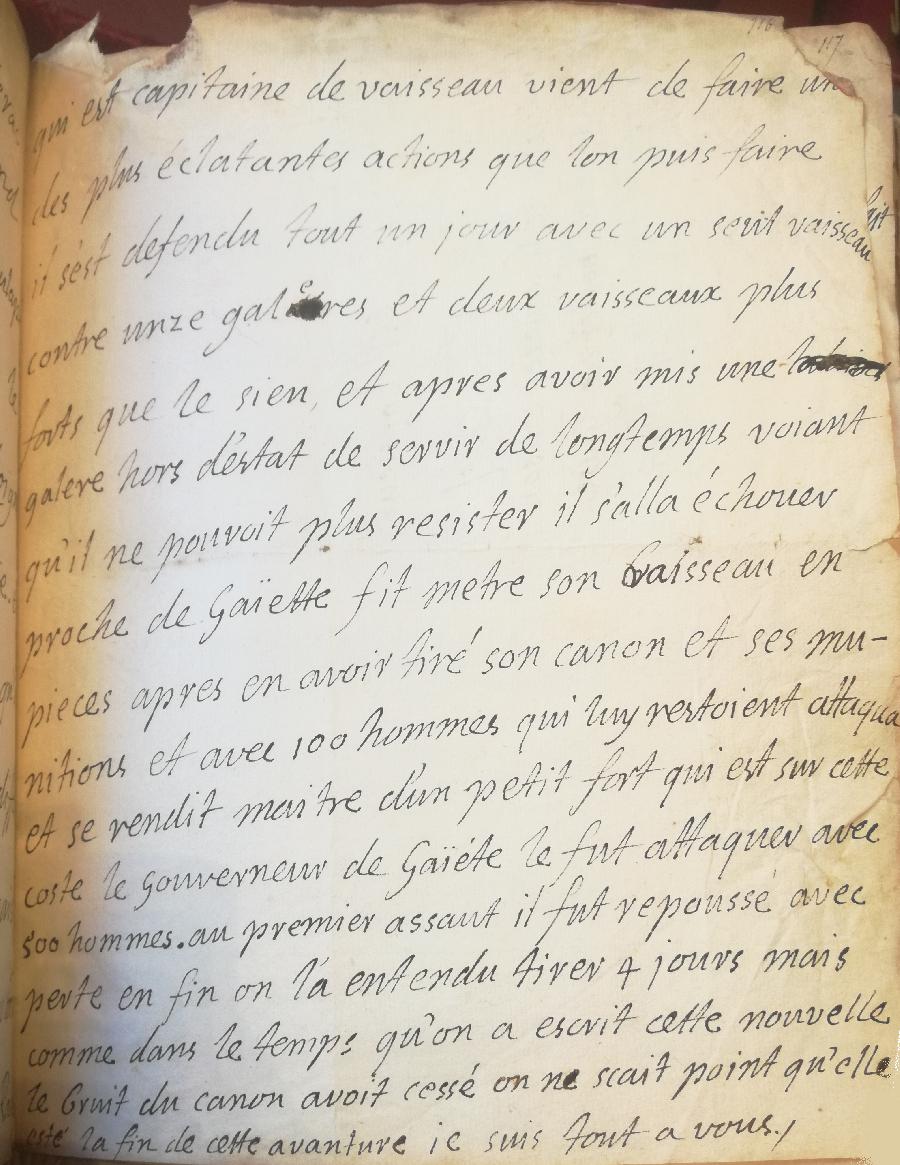 117
qui est capitaine de vaisseau vient de faire un
des plus éclatantes actions que lon puis faire
il s'est defendu tout un jour avec un seul vaisseau
contre unze galeres et deux vaisseaux plus
forts que le sien, et apres avoir mis une
galere hors d'estat de servir de longtemps voiant
qu'il ne pouvoit plus resister il s'alla échouer
proche de Gaïette fit metre son vaisseau en
pieces apres en avoir tiré son canon et ses mu-
nitions et avec 100 hommes qui luy restoient attaqua
et se rendit maitre d'un petit fort qui est sur cette
coste le gouverneur de Gaïéte le fut attaquer avec
500 hommes. au premier assaut il fut repoussé avec
perte en fin on l'a entendu tirer 4 jours mais
comme dans le temps qu'on a escrit cette nouvelle
le bruit du canon avoit cessé on ne scait point qu'elle
esté la fin de cette avanture ie suis tout a vous./